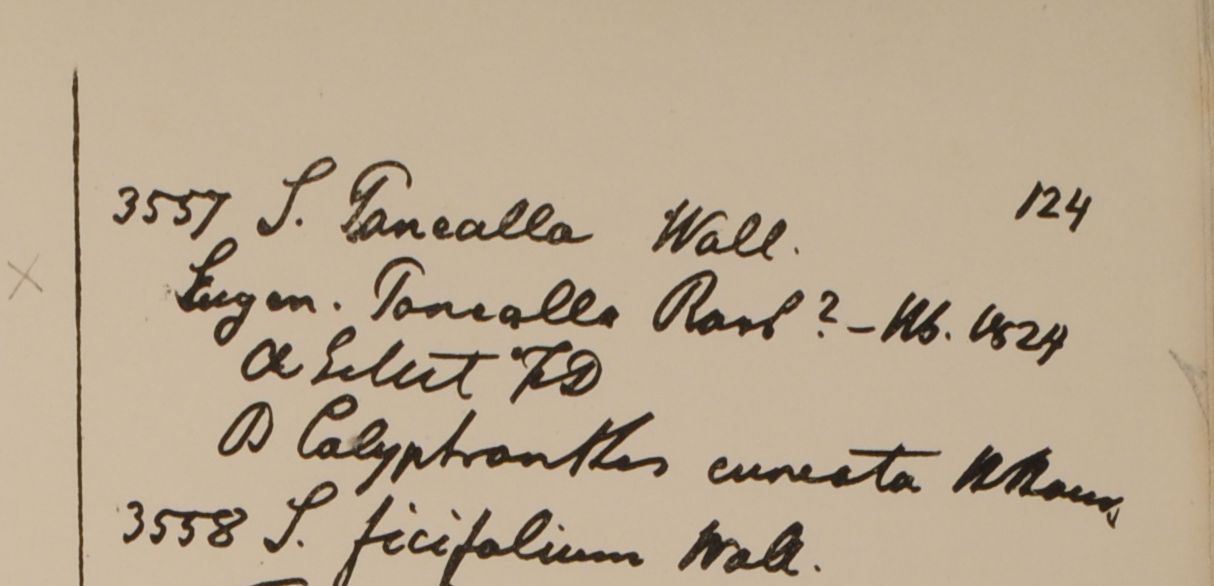 3557 S. Pancalla Wall. 124
Eugen. Pancalla Roxb? - Hb. 1824
a Silhet FD
B Calyptranthes cuneata HHam.
3558 S. ficifolium Wall.